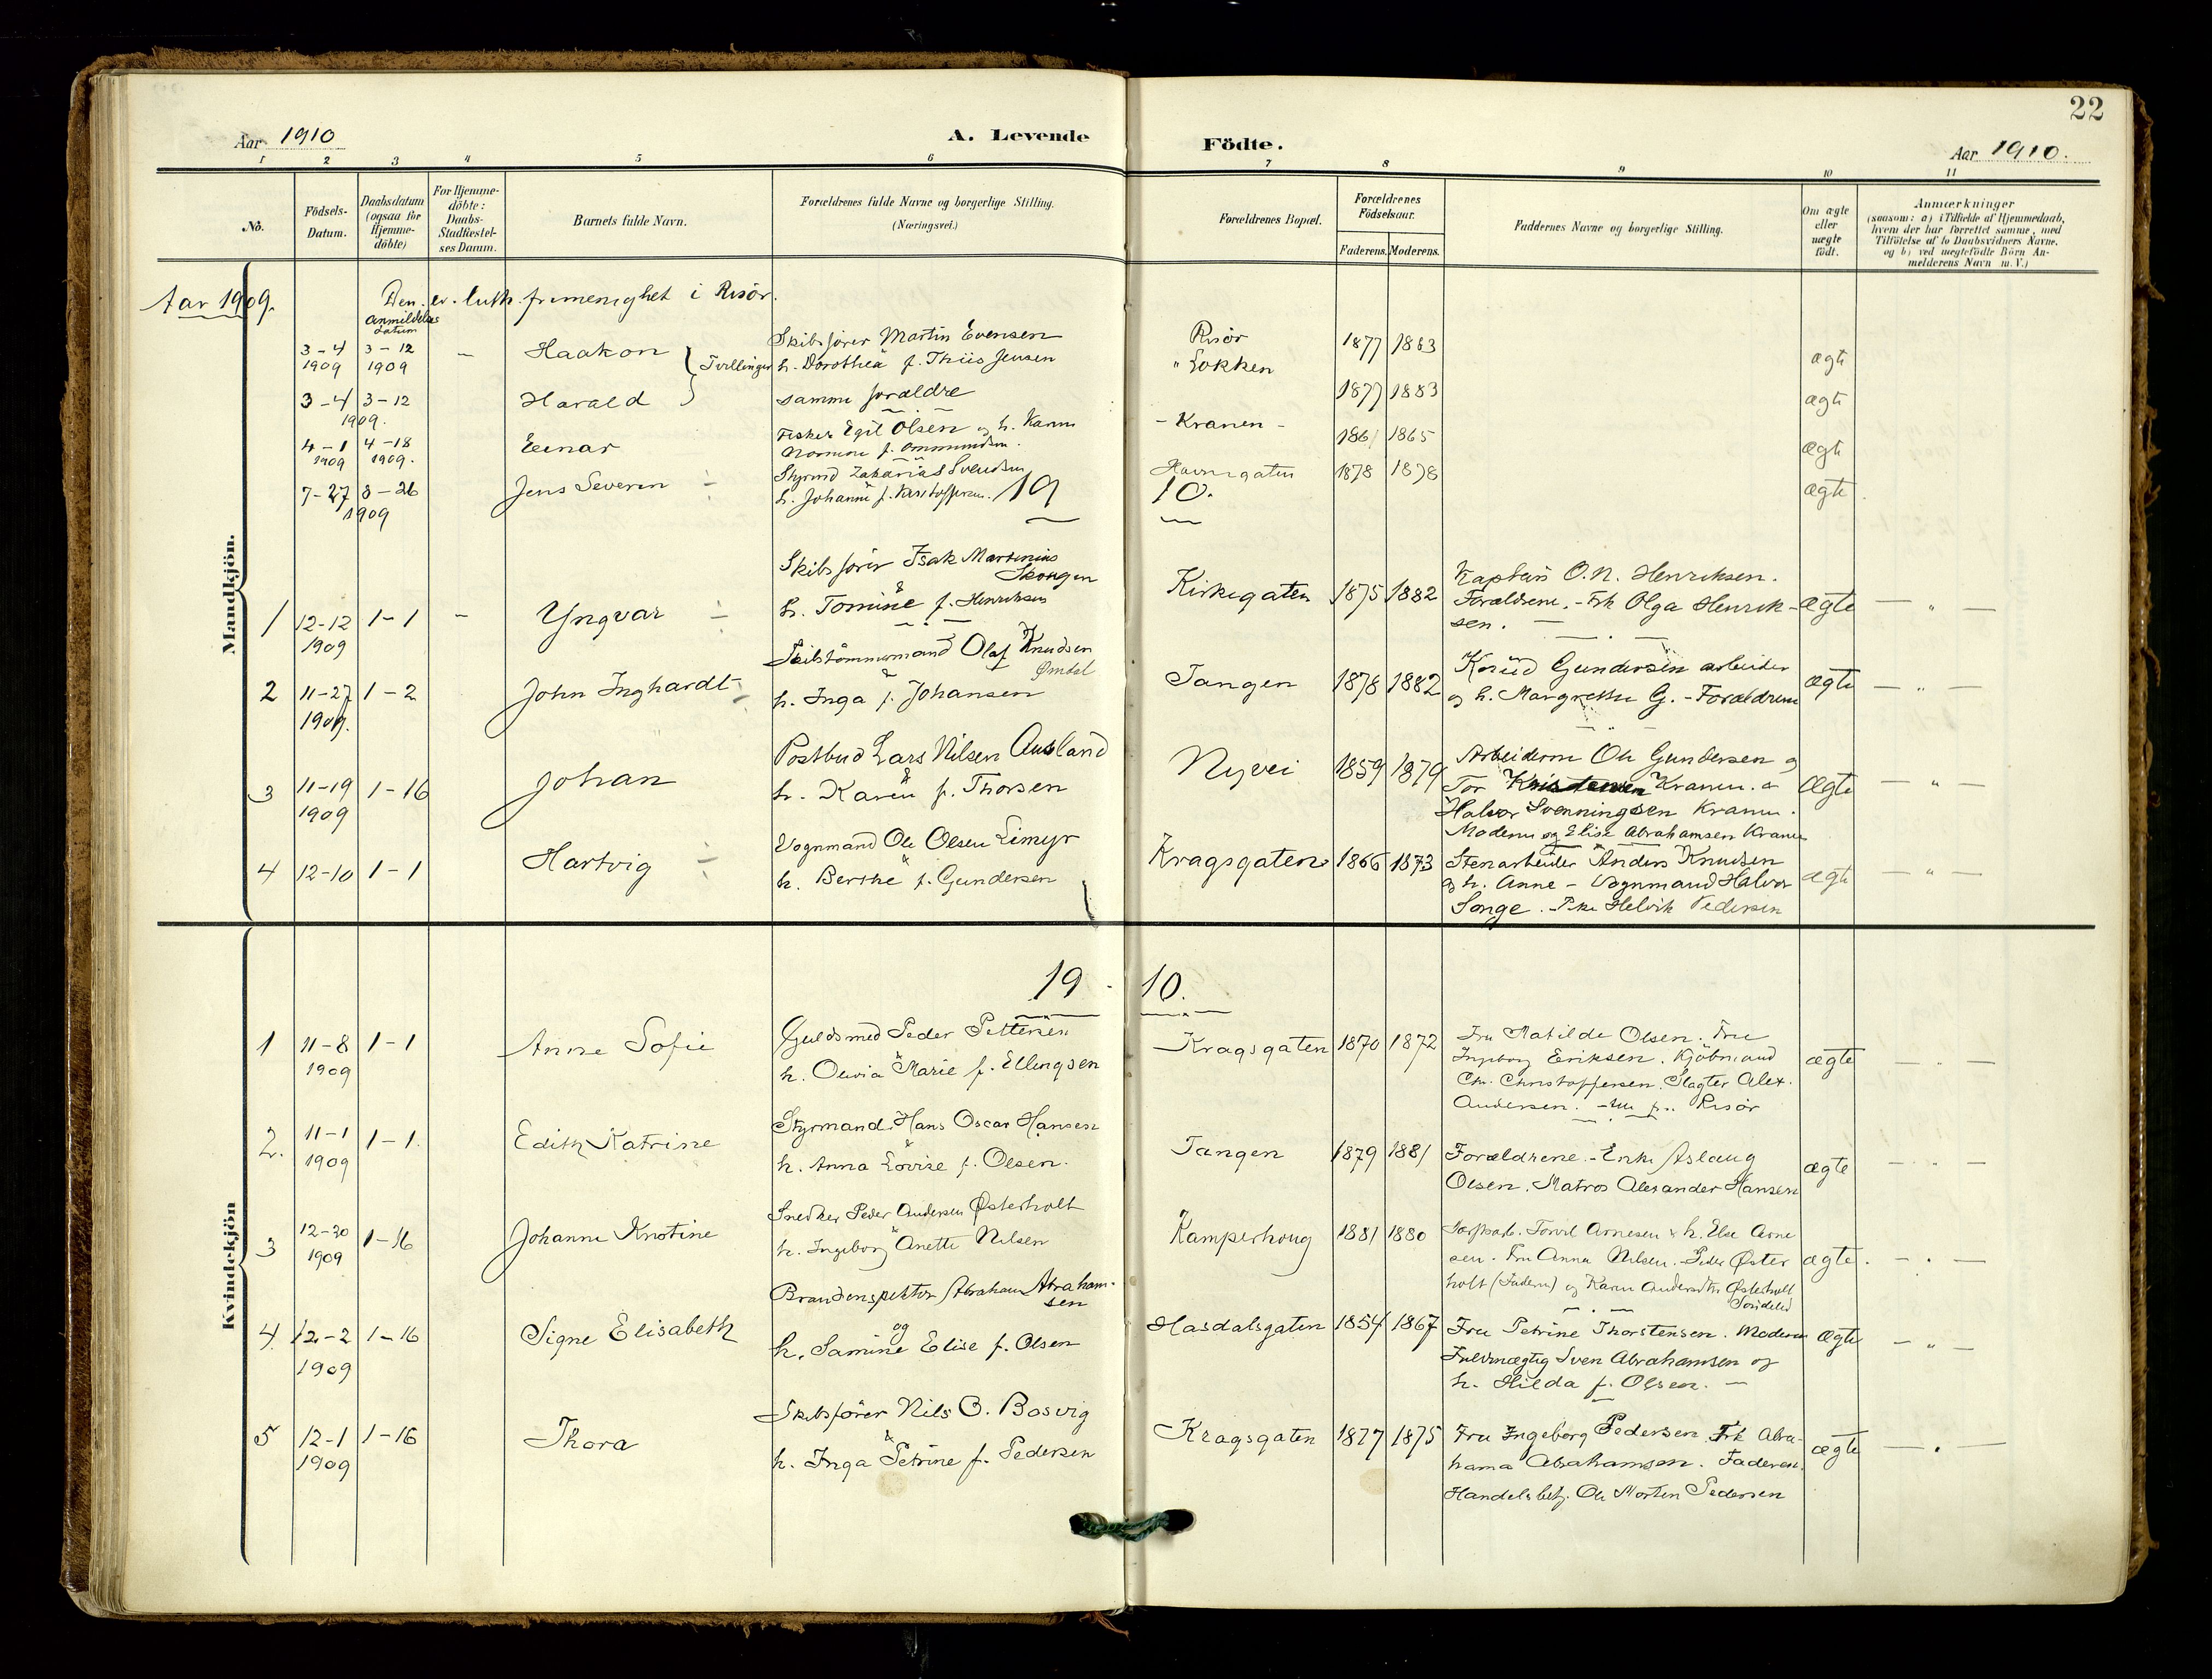 22
Aar 1910
A. Levende Födte.
Aar 1910.
1 2 3 4 5 6 7 8 9 10 11
No.
Födsels-Datum.
Daabsdatum (ogsaa for Hjemme-döbte)
For Hjemme-döbte: Daabs-Stadfæstel-ses Datum.
Barnets fulde Navn.
Forældrenes fulde Navne og borgerlige Stilling.
(Næringsvei.)
Forældrenes Bopæl.
Forældrenes Födselsaar.
Faderens. Moderens.
Faddernes Navne og borgerlige Stilling.
Om ægte eller uægte födt.
Anmærkninger
(saasom: a) i Tilfælde af Hjemmedaab,
hvem der har forrettet samme, med
Tilföielse af to Daabsvidners Navne,
og b) ved uægtefödte Börn An-
melderens Navn m. V.)
Mandkjön.
Aar 1909. Den ev. luth. frimenighet i Risör.
Anmeldelses datum
3-4 1909 3-12 1909 – Haakon } Tvillinger
Skibsförer Martin Evensen
h. Dorothea f. Thiis Jensen
Risör
" Lokken
1877 1883 ægte
3-4 3-12 1909. Harald
samme forældre
1877 1883 ægte
4-1 1909 4-18 1909. Einar
Fisker Egil Olsen og h. Karen
f. Ommundsen.
- Kranen - 1861 1865 ægte
7-27 8-26 1909 Jens Severin
Styrmd Zakarias Svendsen
h. Johanne f. Kristoffersen.
Havnegaten 1878 1878 ægte
19 10.
1 12-12 1909 1-1 – Yngvar
Skibsförer Isak Martinius
Skougen
&
h. Tomine f. Henriksen
Kirkegaten 1875 1882
Kaptein O. N. Henriksen.
Forældrene. - Frk Olga Henrik-
sen. –
ægte — " —
2 11-27 1909. 1-2 John Inghardt
Skibstömmermand Olaf Knudsen
Omdal
&
h. Inga f. Johansen
Tangen 1878 1882
Knud Gundersen arbeider
og h. Margrethe G. - Forældrene
ægte — " —
3 11-19 1909 1-16 Johan
Postbud Lars Nilsen Ausland
&
h. Karen f. Thorsen
Nyvei 1859 1879
Arbeiderne Ole Gundersen og
Tor Kranen. &
Halvor Svenningsen Kranen.
Moderen og Elise Abrahamsen Kranen
ægte — " —
4 12-10 1-1 Hartvig
Vognmand Ole Olsen Limyr
&
h. Berthe f. Gundersen
Kragsgaten 1866 1873
Stenarbeider Anders Knudsen
og h. Anne - Vognmand Halvor
Songe. Pike Helvik Pedersen
ægte — " —
Kvindekjön
19 - 10.
1 11-8 1909 1-1 Anne Sofie
Guldsmed Peder Pettersen
&
h. Olivia Marie f. Ellingsen
Kragsgaten 1870 1872
Fru Matilde Olsen. Fru
Ingeborg Eriksen. Kjöbmand
Chr. Christoffersen. Slagter Alex.
Andersen. - Alle fra Risör
ægte — " —
2. 11-1 1909 1-1. Edith Katrine
Styrmand Hans Oscar Hansen
&
h. Anna Lovise f. Olsen.
Tangen 1879 1881
Forældrene. - Enke Aslaug
Olsen. Matros Alexander Hansen
ægte — " —
3 12-20 1909 1-16 Johanne Kristine
Snedker Peder Andersen Østerholt
&
h. Ingeborg Anette Nilsen
Kamperhoug 1881 1880
Torvil Arnesen & h. Else Arne
sen. Fru Anna Nilsen. Peder Øster
holt (Faderen) og Karen Østerholt
Söndeled
ægte. - " -
4. 12-2 1909 1-16 Signe Elisabeth
Brandinspektör Abraham Abraham-
sen
og
h. Samine Elise f. Olsen
Hasdalsgaten 1854 1867
Fru Petrine Thorstensen. Moderen
Fuldmægtig Sven Abrahamsen og
h. Hilda f. Olsen. —
ægte — " —
5 12-1 1909 1-16 Thora
Skibsförer Nils O. Bosvig
&
h. Inga Petrine f. Pedersen
Kragsgaten 1877 1875
Fru Ingeborg Pedersen Frk Abra-
hama Abrahamsen. Faderen.
Handelsbetj. Ole Morten Pedersen
ægte — " —